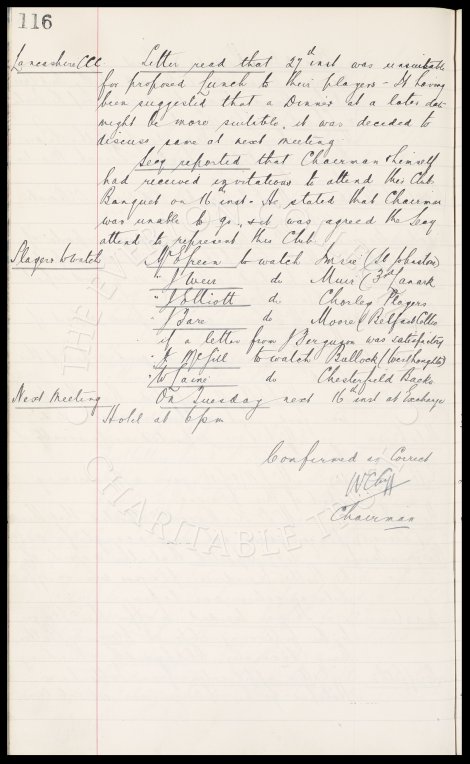 116
Lancashire CCC Letter read that 27th inst was unsuitable
for proposed Lunch to their players - It having
been suggested that a Dinner at a later date
might be more suitable, it was decided to
discuss same at next meeting
Secy reported that Chairman & himself
had received invitations to attend this Club
Banquet on 16th inst. He stated that Chairman
was unable to go, & it was agreed the Secy
attend to represent this Club.
Players to watch to watch (St Johnstone)
" J Weir do Muir (3rd Lanark
" J Elliott do Chorley Players
" J Bare do Moore (Belfast Celtic
if a letter from J Ferguson was satisfactory
" McGill to watch Bullock
" W Caine do Chesterfield Backs
Next Meeting On Tuesday next 16th inst at Exchange
Hotel at 6pm
Confirmed as Correct
Chairman
THE EVERTON
CHARITABLE